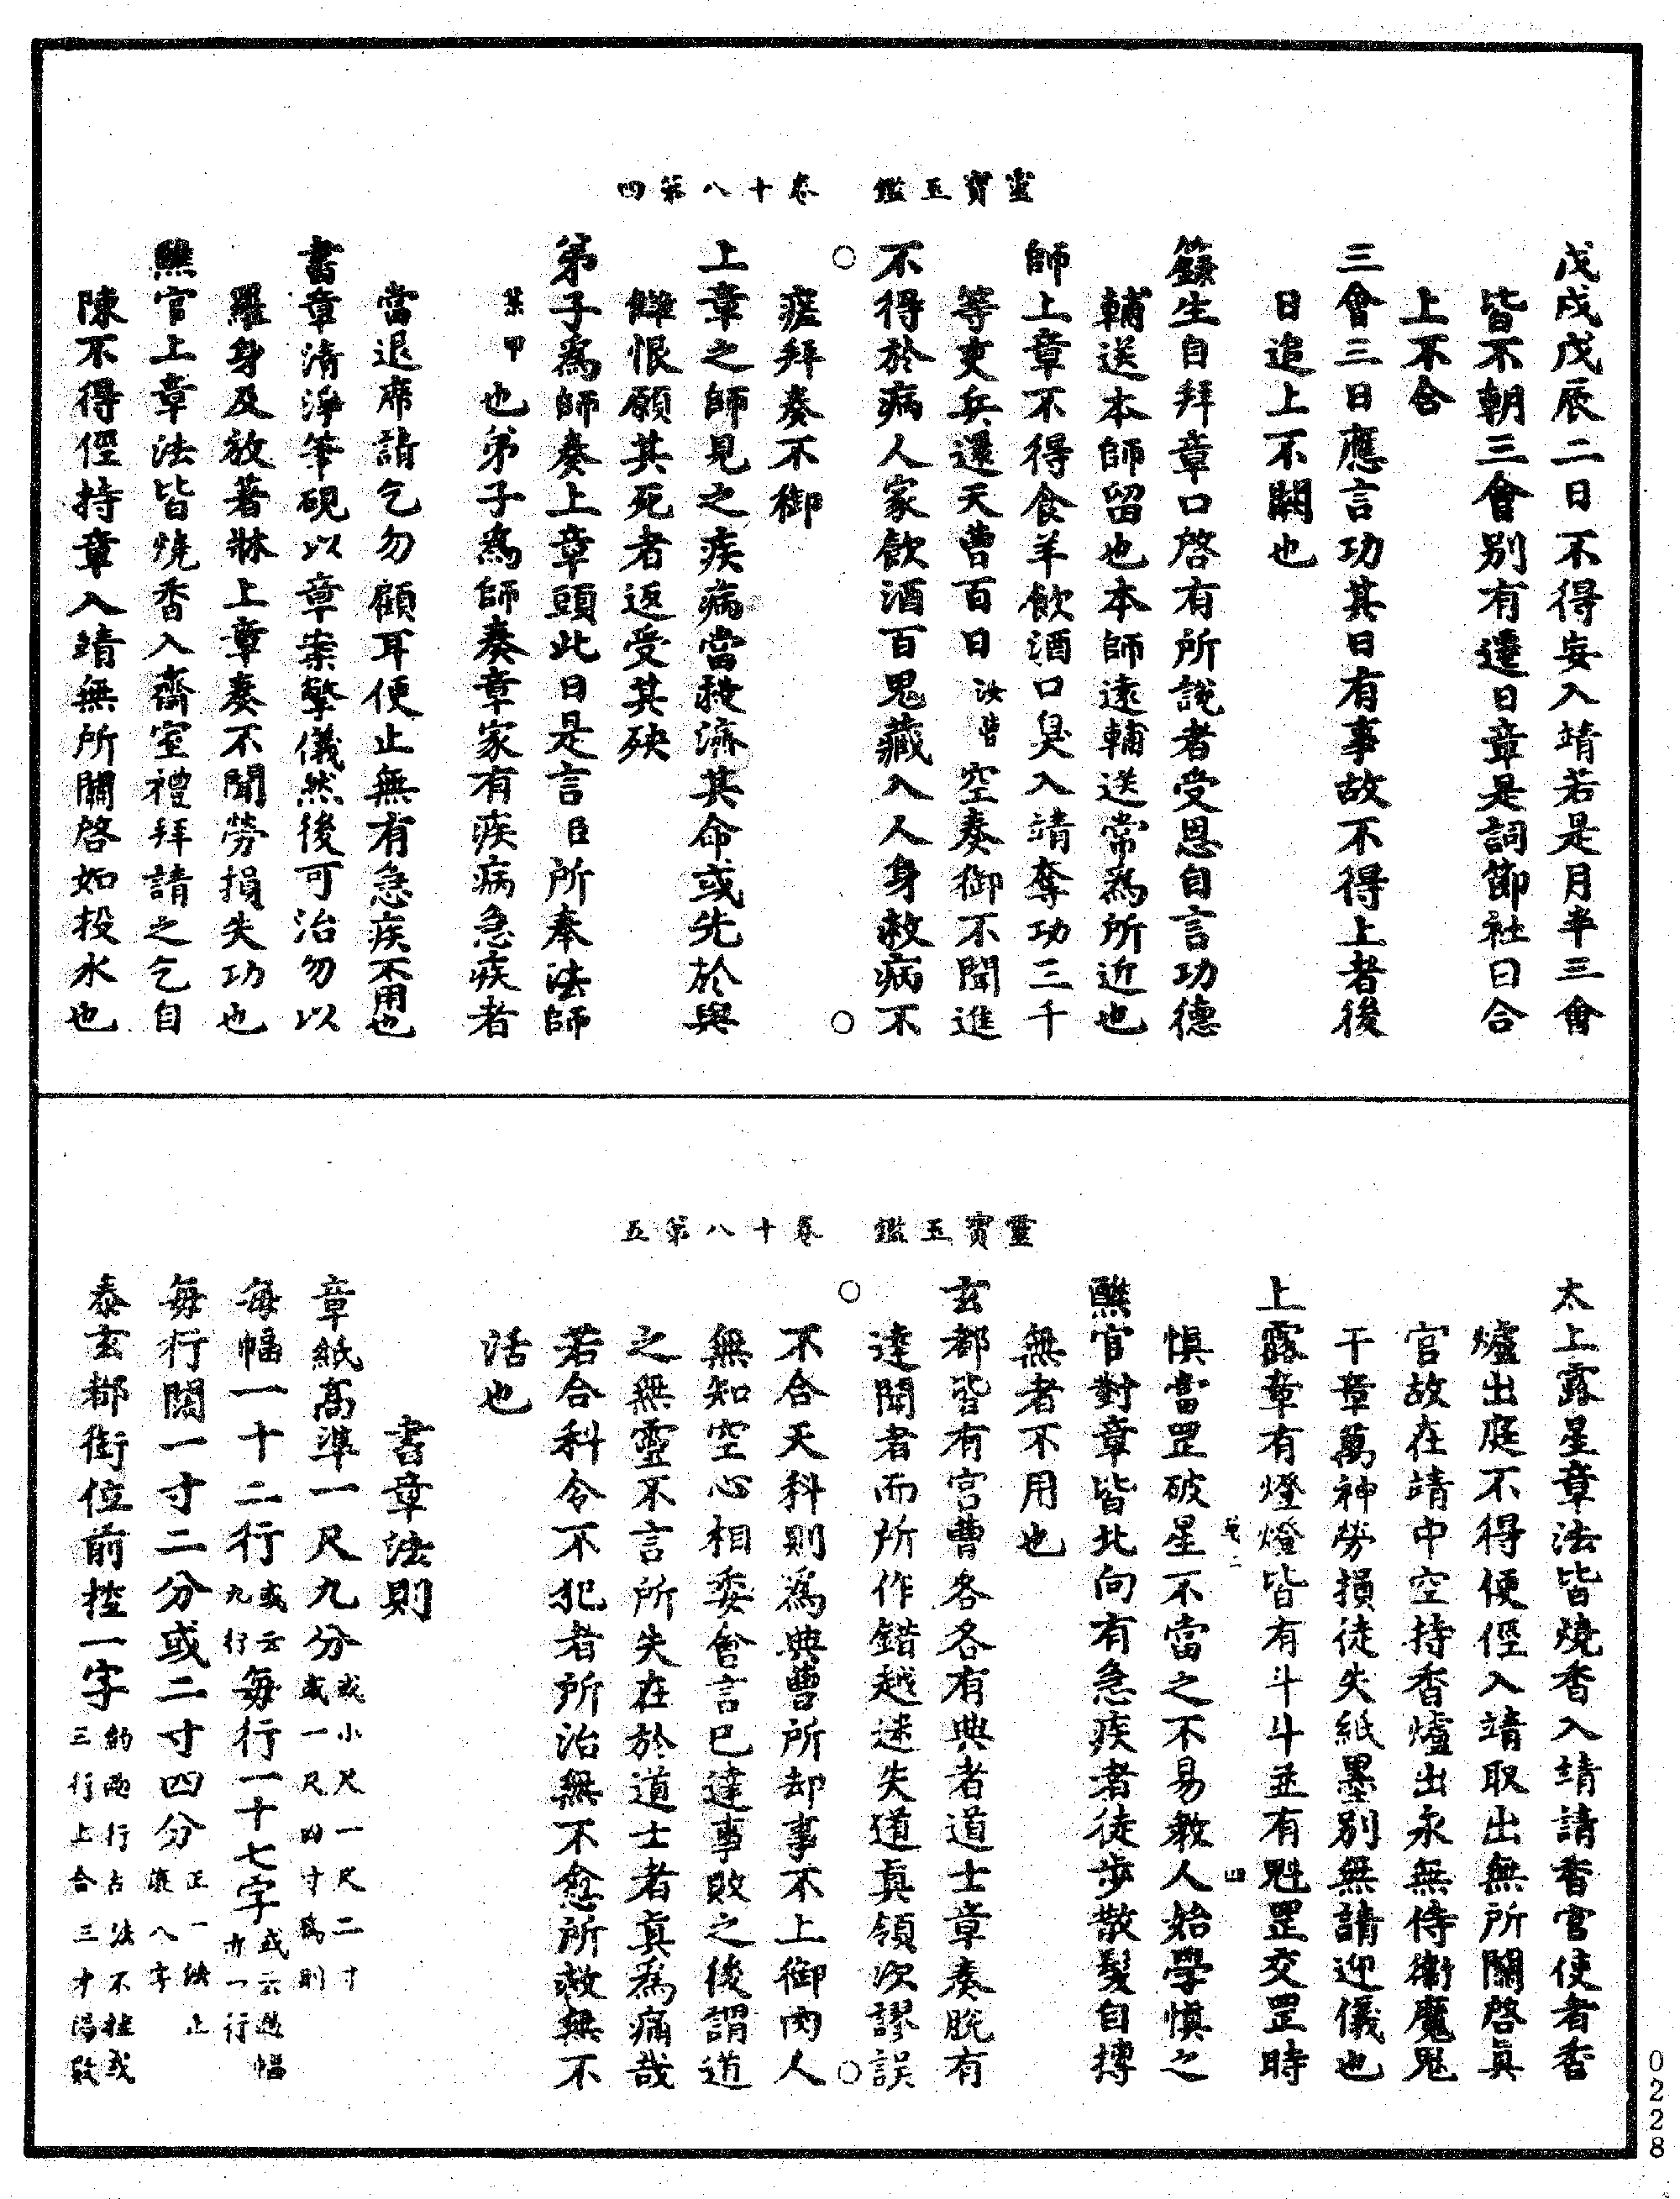 靈寶玉鑑　卷十八第四
戊戌戊辰二日不得妄入靖若是月半三會
皆不朝三會別有遷日章是詞節社日合
上不合
三會三日應言功其日有事故不得上者後
日追上不關也
籙生自拜章口啓有所說者受恩自言功德
輔送本師留也本師遠輔送常爲所近也
師上章不得食羊飲酒口臭入靖奪功三千
等吏兵還天曹百日汝曹空奏御不聞進
不得於病人家飲酒百鬼藏入人身救病不
瘥拜奏不御
上章之師見之疾病當救濟其命或先於與
讎恨願其死者返受其殃
弟子爲師奏上章頭此日是言臣所奉法師
某甲也弟子爲師奏章家有疾病急疾者
當退席請乞勿顧耳便止無有急疾不用也
書章清淨筆硯以章案擎儀然後可治勿以
羅身及放著牀上章奏不聞勞損失功也
醮官上章法皆燒香入齋室禮拜請之乞自
陳不得徑持章入靖無所關啓如投水也
靈寶玉鑑　卷十八第五
太上露星章法皆燒香入靖請香官使者香
爐出庭不得便徑入靖取出無所關啓眞
官故在靖中空持香爐出永無侍衞魔鬼
干章萬神勞損徒失紙墨別無請迎儀也
上露章有燈燈皆有斗斗並有魁罡交罡時
卷二　四
慎當罡破星不當之不易教人始學慎之
醮官對章皆北向有急疾者徒步散髮自摶
無者不用也
玄都皆有宮曹各各有典者道士章奏脫有
達聞者而所作錯越迷失道眞領次謬誤
不合天科則爲典曹所却事不上御內人
無知空心相委會言已達事敗之後謂道
之無靈不言所失在於道士者眞爲痛哉
若合科令不犯者所治無不愈所救無不
活也
書章法則
章紙高準一尺九分或小尺一尺二寸或一尺四寸爲則
每幅一十二行或云九行每行一十七字或云邊幅亦一行
每行闊一寸二分或二寸四分正一缺止滾八字
泰玄都銜位前挂一字約兩行古法不挂或三行上合三寸濶
0228